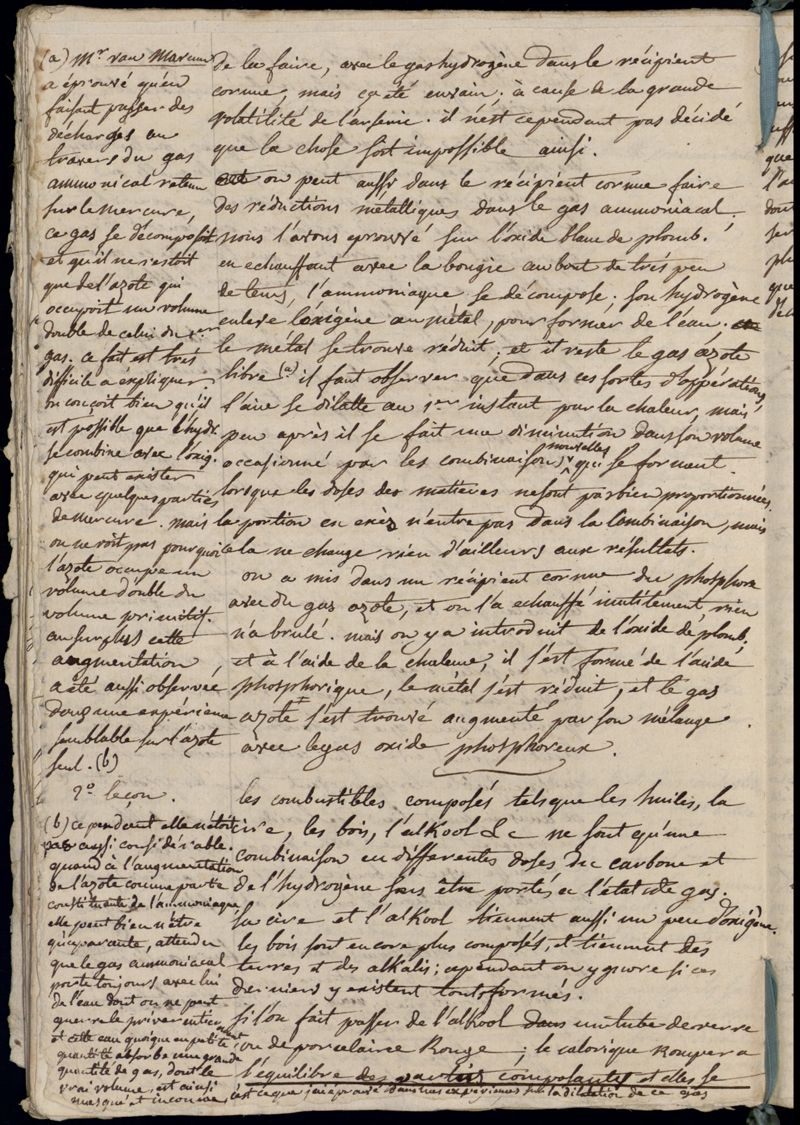 (a) Mr. van Marum
a éprouvé qu'en
faisant passer des
décharges au
travers du gas
ammonical retenu
sur le mercure,
ce gas se décomposoit
et qu'il ne restoit
que de l'azote qui
occupoit un volume
double de celui du 1er
gas. ce fait est très
difficile a expliquer.
on conçoit bien qu'il
est possible que l'hydr.
se combine avec l'oxig.
qui peut exister
avec quelques parties
de mercure. mais
on ne voit pas pourquoi
l'azote occupe un
volume double du
volume primitif.
au surplus cette
augmentation,
a été aussi observée
dans une expérience
semblable sur l'azote
seul. (b)
2e leçon.
(b) cependant elle n'étoit
pas aussi considérable.
quand à l'augmentation
de l'azote comme partie
constituante de l'ammoniaque
elle peut bien n'être
qu'aparante, attendu
que le gas ammoniacal
porte toujours avec lui
de l'eau dont on ne peut
guerre le priver entierement
et cette eau quoique en petite
quantité absorbe une grande
quantité de gas, dont le
vrai volume est ainsi
masqué et inconnu,
de la faire, avec le gas hydrogène dans le récipient
cornue, mais ça été envain; à cause de la grande
volatilité de l'arsenic. il n'est cependant pas décidé
que la chose soit impossible ainsi.
on peut aussi dans le récipient cornue faire
des réductions métalliques dans le gas ammoniacal.
nous l'avons éprouvé sur l'oxide blanc de plomb.
en echauffant avec la bougie au bout de très peu
de tems, l'ammoniaque se décompose; son hydrogène
enlève l'oxigène au métal, pour former de l'eau.
le métal se trouve réduit; et il reste le gas azote
libre (a) il faut observer que dans ces sortes d'oppérations,
l'aire se dilatte au 1er instant par la chaleur, mais
peu après il se fait une diminution dans son volume
occasionné par les combinaisons nouvelles qui se forment.
lorsque les doses des matieres ne sont pas bien proportionnées,
la portion en exèz n'entre pas dans la Combinaison, mais
cela ne change rien d'ailleurs aux résultats.
on a mis dans un récipient cornue du phosphore
avec du gas azote, et on l'a echauffé inutilement, rien
n'a brulé. mais on y a introduit de l'oxide de plomb;
et à l'aide de la chaleur, il s'est formé de l'acide
phosphorique, le métal s'est réduit, et le gas
azote s'est trouvé augmenté par son mélange
avec le gas oxide phosphoreux.
les combustibles composés tels que les huiles, la
cire, les bois, l'alKool &c ne sont qu'une
combinaison en différentes doses du carbone et
de l'hydrogène sans être portés a l'état de gas.
la cire et l'alKool tiennent aussi un peu d'oxigène.
les bois sont encore plus composés, et tiennent des
terres et des alKalis; cependant on ignore si ces
derniers y existent tout formés.
si l'on fait passer de l'alKool dans un tube de verre
ou de porcelaine Rouge; le calorique rompera
l'équilibre des parties composantes et elles se
c'est ce que j'ai éprouvé dans mes expériences sur la dilatation de ce gas